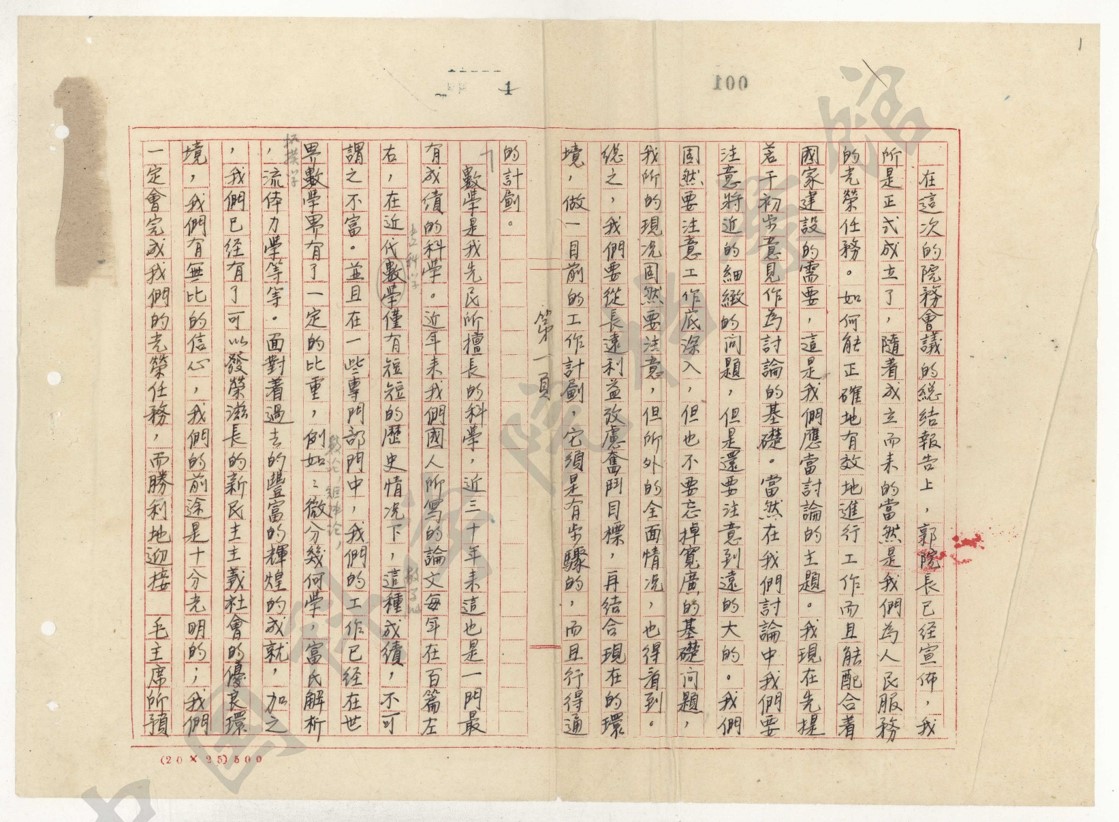 1
001
在這次的院務會議的總結報告上，郭院長已经宣佈，我
所是正式成立了，隨着成立而来的當然是我們為人民服務
的光荣任務。如何能正確地有效地進行工作而且能配合着
國家建設的需要，這是我們應當討論的主題。我現在先提
若干初步意見作為討論的基礎。當然在我們討論中我們要
注意將近的細緻的问題，但是還要注意到遠的大的。我們
固然要注意工作底深入，但也不要忘掉寬廣的基礎问題，
我所的现况固然要注意，但所外的全面情况，也得看到。
總之，我們要從長遠利益攷慮奮鬥目標，再结合現在的環
境，做一目前的工作計劃，它須是有步驟的，而且行得通
第一頁
的計劃。
數學是我先民所擅長的科學，近三十年来這也是一門最
有成績的科學。近年来我們國人所寫的論文每年在百篇左
右，在近代數學僅有短短的歷史情况下，這種成績，不可
謂之不富。並且在一些專門部門中，我們的工作已经在世
界數學界有了一定的比重，例如：微分幾何學，富氏解析
數论
，流体力學等等。面對着過去的豐富的輝煌的成就，加之
，我們已经有了可以發榮滋長的新民主主義社會的優良環
境，我們有無比的信心，我們的前途是十分光明的；我們
一定會完成我們的光荣任務，而勝利地迎接 毛主席所預
(20×25)500
中国科学院档案馆